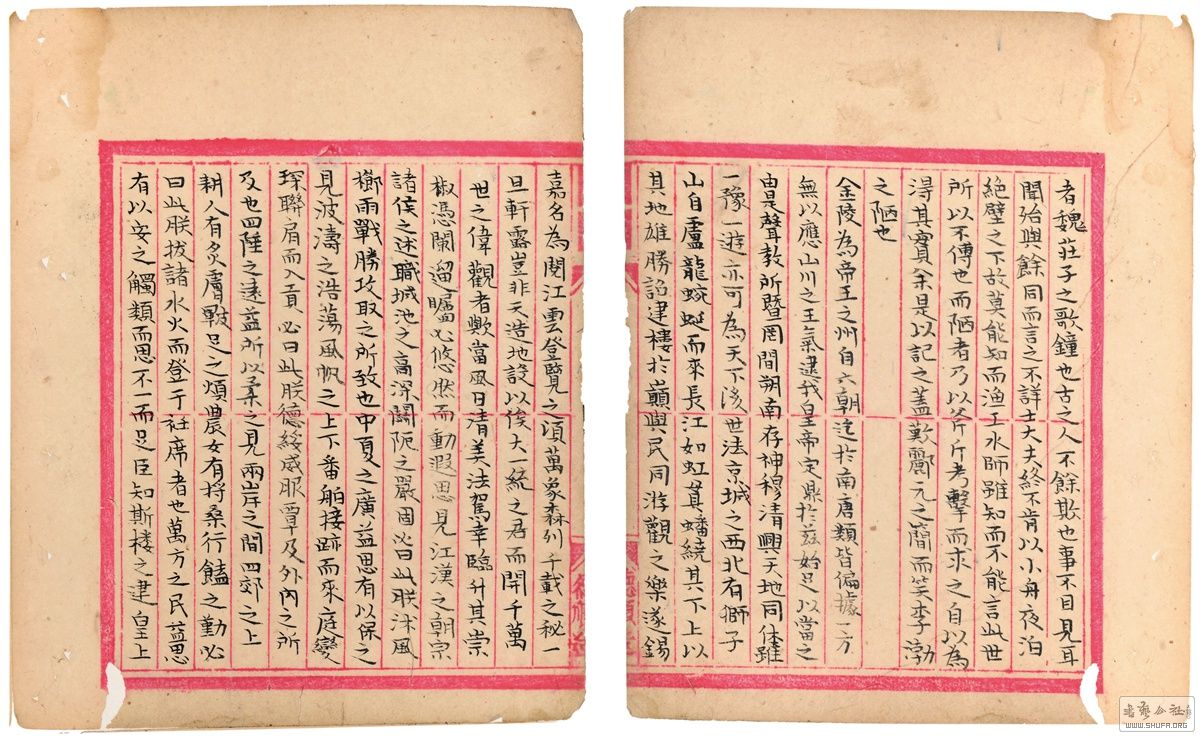 者魏莊子之歌鐘也古之人不餘欺也事不目見耳
聞殆與餘同而言之不詳士大夫終不肯以小舟夜泊
絕壁之下故莫能知而漁工水師雖知而不能言此世
所以不傳也而陋者乃以斧斤考擊而求之自以為
得其實余是以記之蓋歎酈元之簡而笑李渤
之陋也
金陵為帝王之州自六朝迄於南唐類皆偏據一方
無以應山川之王氣逮我皇帝定鼎於茲始足以當之
由是聲教所暨罔間朔南存神穆清與天地同體雖
一豫一遊亦可為天下後世法京城之西北有獅子
山自盧龍蜿蜒而來長江如虹貫蟠繞其下上以
其地雄勝詔建樓於巔與民同游觀之樂遂錫
嘉名為閱江雲登覽之頃萬象森列千載之秘一
旦軒露豈非天造地設以俟大一統之君而開千萬
世之偉觀者歟當風日清美法駕幸臨升其崇
椒憑闌遥矚必悠然而動遐思見江漢之朝宗
諸侯之述職城池之高深關阨之嚴固必曰此朕沐風
櫛雨戰勝攻取之所致也中夏之廣益思有以保之
見波濤之浩蕩風帆之上下番舶接跡而來庭蠻
琛聯肩而入貢必曰此朕德綏威服覃及外內之所
及也四陲之遠益所以柔之見兩岸之間四郊之上
耕人有炙膚皸足之煩農女有捋桑行饁之勤必
曰此朕拔諸水火而登于衽席者也萬方之民益思
有以安之觸類而思不一而足臣知斯樓之建皇上
德順
書藝公社
WWW.SHUFA.ORG